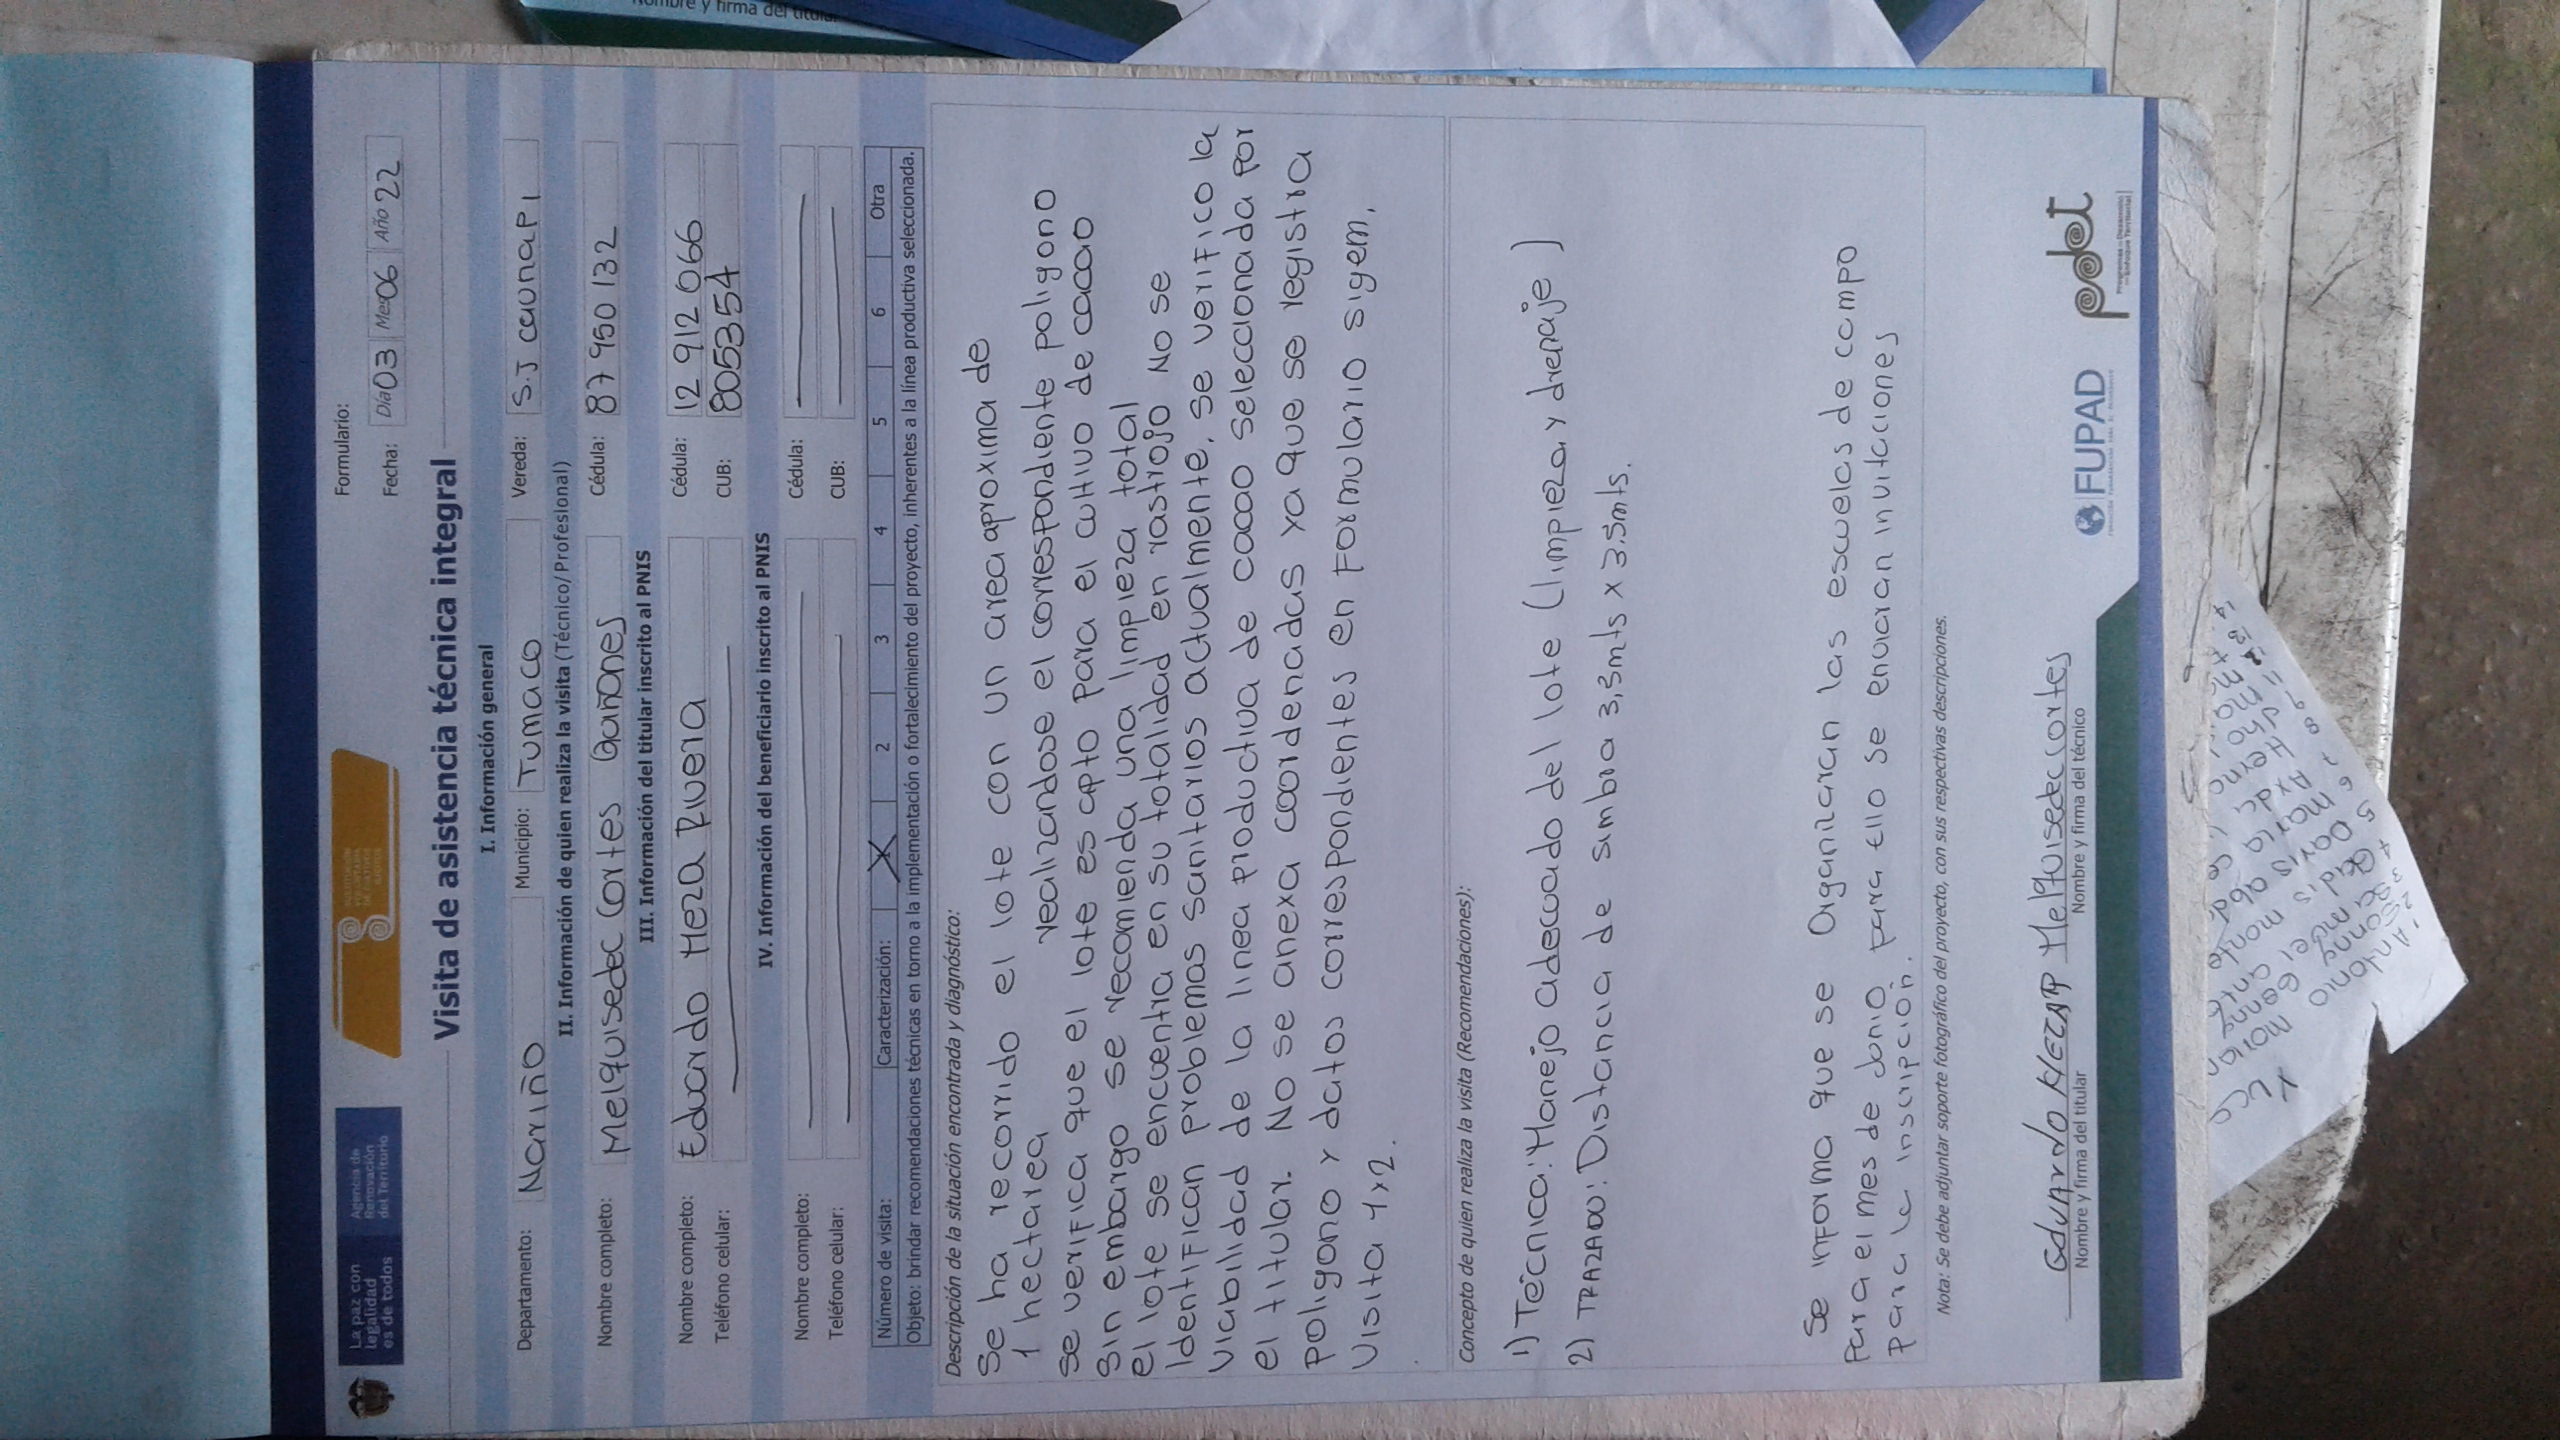 Nombre y firma del titular
La paz con
legalidad
es de todos
Agencia de
Renovación
del Territorio
Formulario:
Fecha: Día 03 Mes 06 Año 22
Visita de asistencia técnica integral
I. Información general
Departamento: Nariño Municipio: Tumaco Vereda: S.J caunapi
II. Información de quien realiza la visita (Técnico/Profesional)
Nombre completo: Melquisedec Cortes Quiñones Cédula: 87 950 132
III. Información del titular inscrito al PNIS
Nombre completo: Eduardo Meza Rivera Cédula: 12 912 066
Teléfono celular: CUB: 805354
IV. Información del beneficiario inscrito al PNIS
Nombre completo: Cédula:
Teléfono celular: CUB:
Número de visita: Caracterización: X 2 3 4 5 6 Otra
Objeto: brindar recomendaciones técnicas en torno a la implementación o fortalecimiento del proyecto, inherentes a la línea productiva seleccionada.
Descripción de la situación encontrada y diagnóstico:
Se ha recorrido el lote con un area aproxima de
1 hectarea realizandose el correspondiente poligono
se verifica que el lote es apto para el cultivo de cacao
Sin embargo se recomienda una limpieza total
el lote se encuentra en su totalidad en rastrojo No se
Identifican problemas sanitarios actualmente, se verifico la
viabilidad de la linea productiva de cacao seleccionada por
el titular. No se anexa coordenadas ya que se registra
poligono y datos correspondientes en Formulario sigem,
Visita 1x2.
Concepto de quien realiza la visita (Recomendaciones):
1) Tecnica: Manejo adecuado del lote (limpieza y drenaje)
2) TRAZADO: Distancia de simbra 3,5mts x 3.5mts.
Se informa que se Organizaran las escuelas de campo
para el mes de Junio para ello se enviaran invitaciones
para la inscripción.
Nota: Se debe adjuntar soporte fotográfico del proyecto, con sus respectivas descripciones.
Eduardo MEZA R Melquisedec cortes
Nombre y firma del titular Nombre y firma del técnico
FUPAD
pdet
Yuca
1 Antonio
2 Sonny
3 Samuel
5 Davis
6 Maria